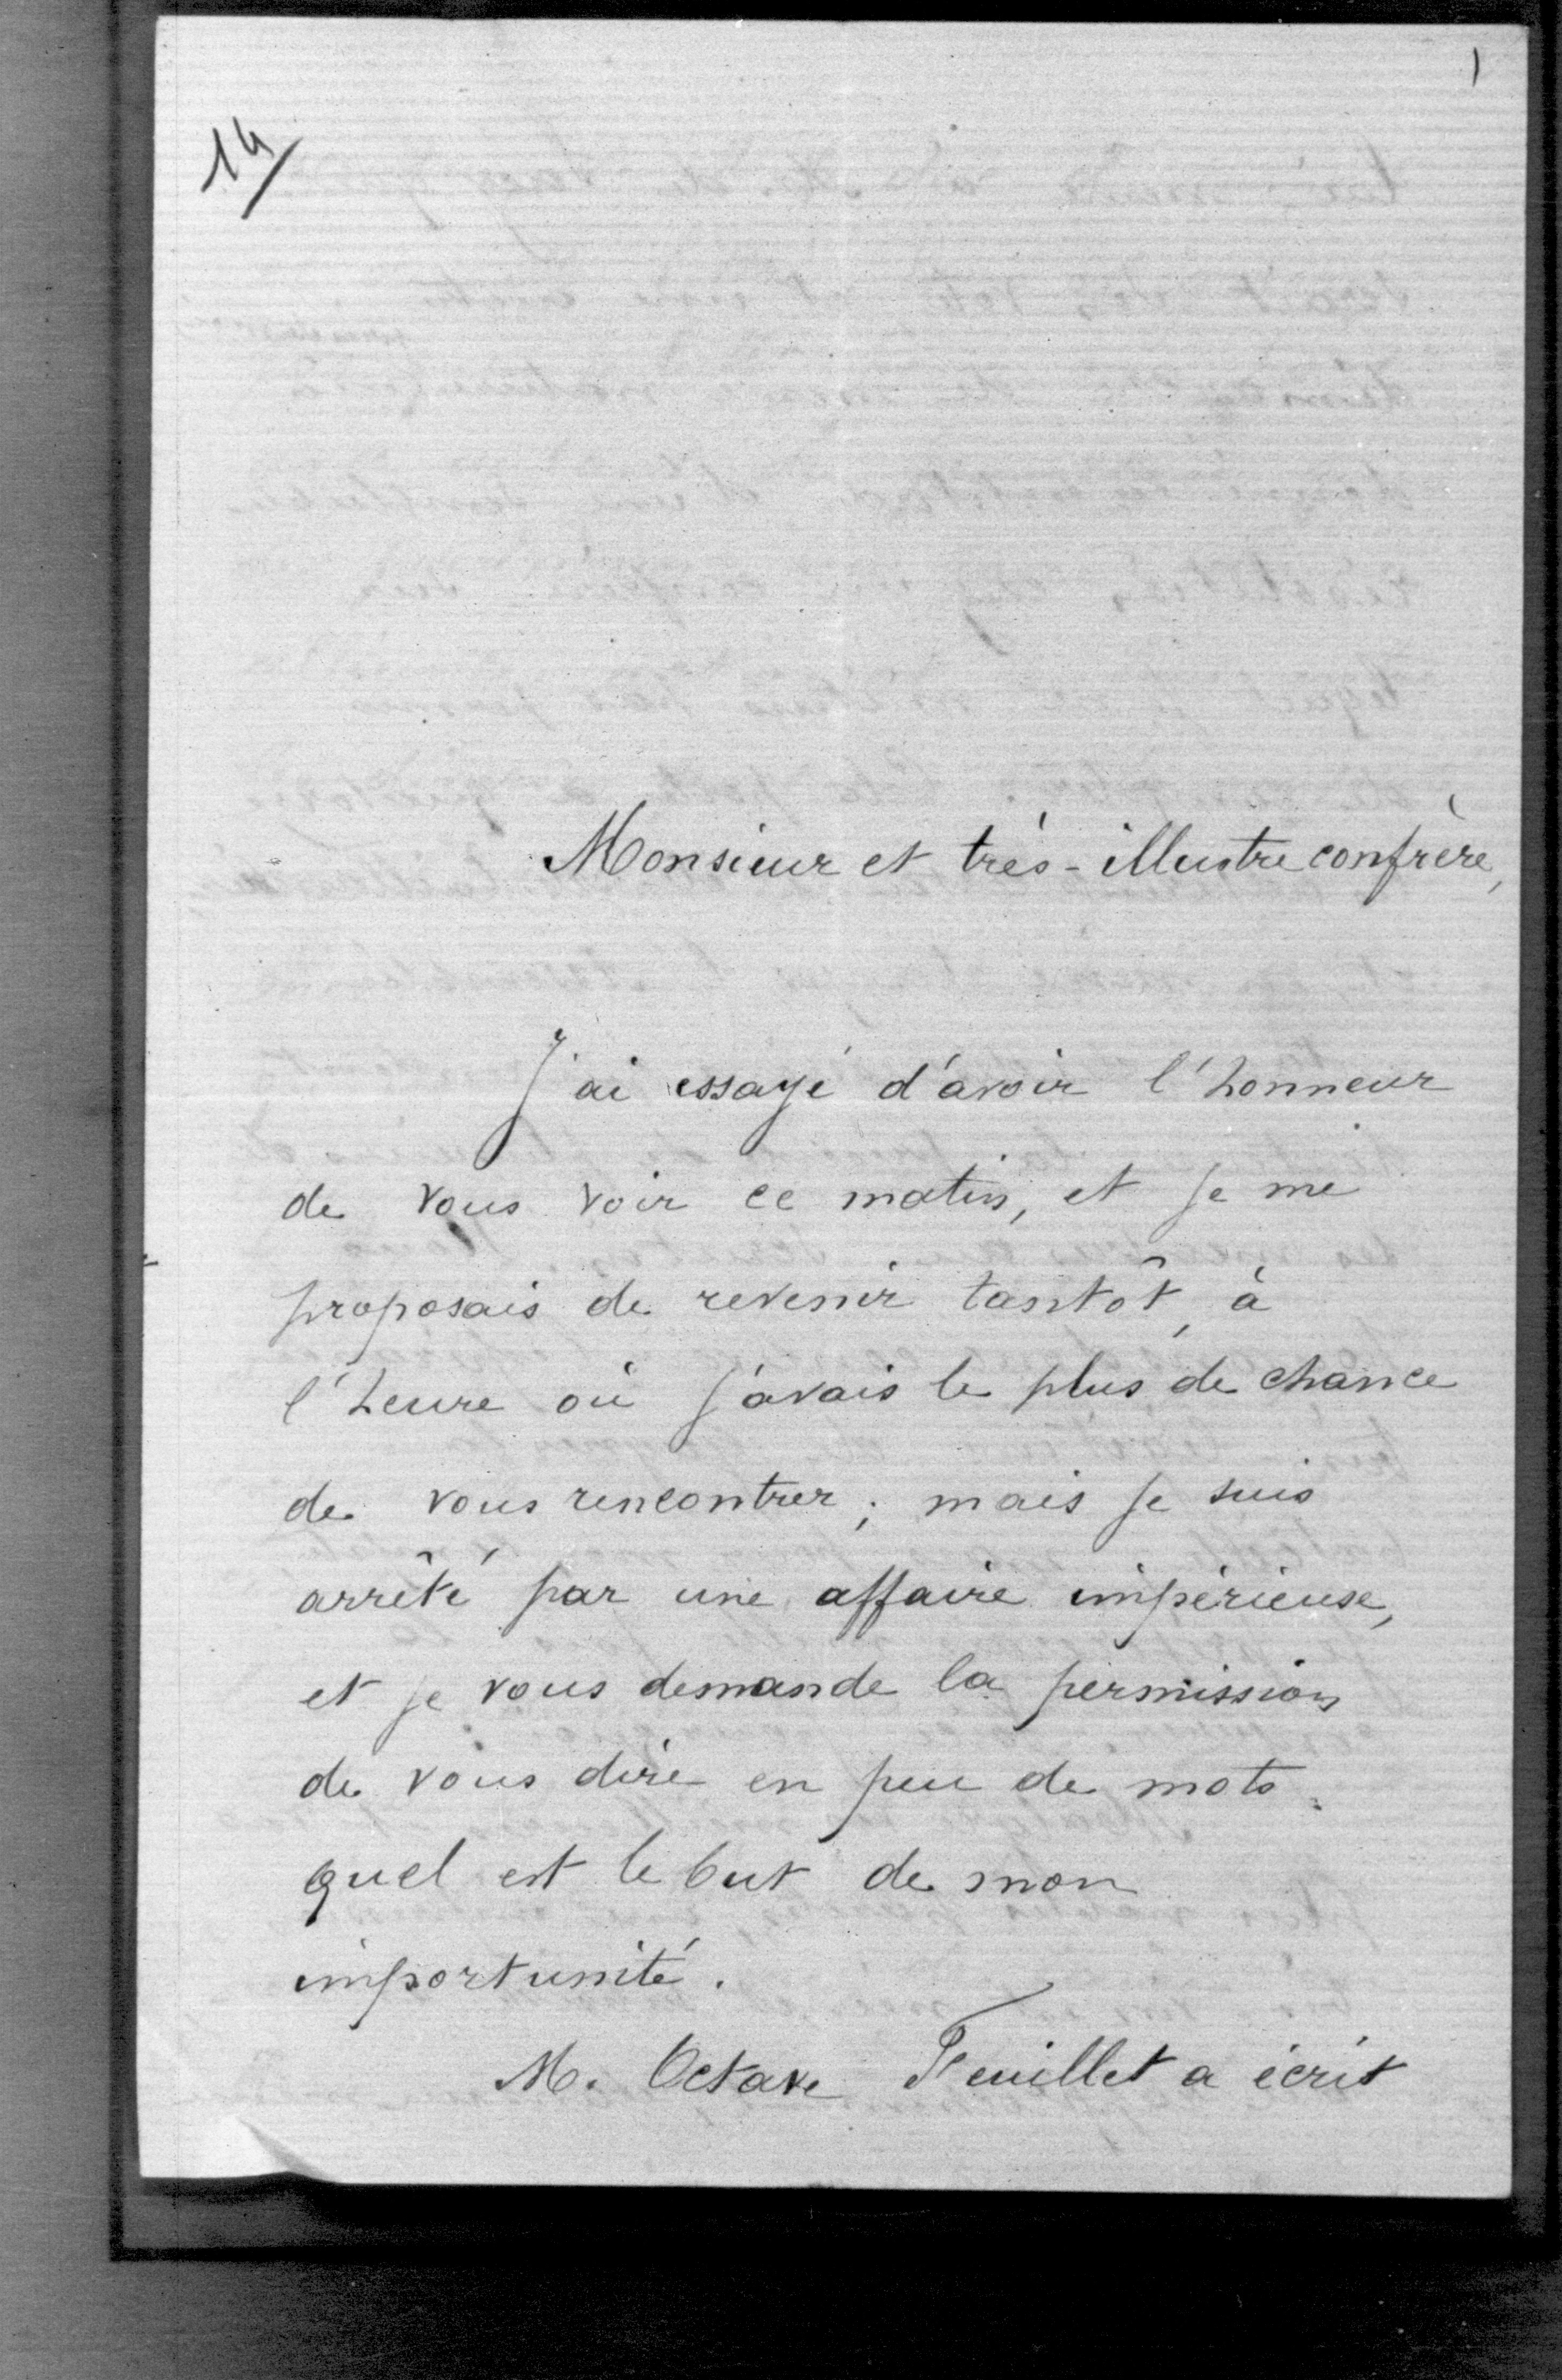 1
14
Monsieur et très-illustre confrère,
J'ai essayé d'avoir l'honneur
de vous voir ce matin, et je me
proposais de revenir tantôt, à
l'heure où j'avais le plus de chance
de vous rencontrer ; mais je suis
arrêté par une affaire impérieuse,
et je vous demande la permission
de vous dire en peu de mots
quel est le but de mon
importunité.
M. Octave Feuillet a écrit